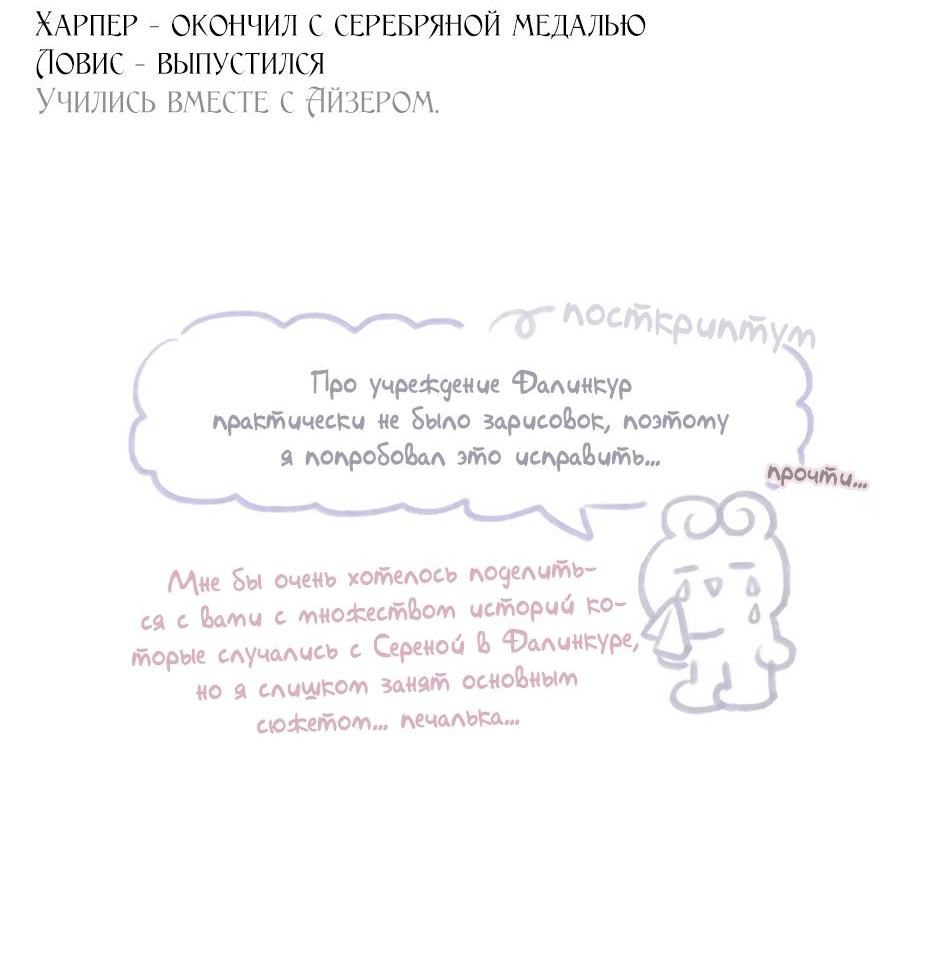 Харпер - окончил с серебряной медалью
Ловис - выпустился
Учились вместе с Айзером.
посткриптум
Про учреждение Далинкур
практически не было зарисовок, поэтому
я попробовал это исправить...
прочти...
Мне бы очень хотелось поделить-
ся с вами с множеством историй ко-
торые случались с Сереной в Далинкуре,
но я слишком занят основным
сюжетом... печалька...